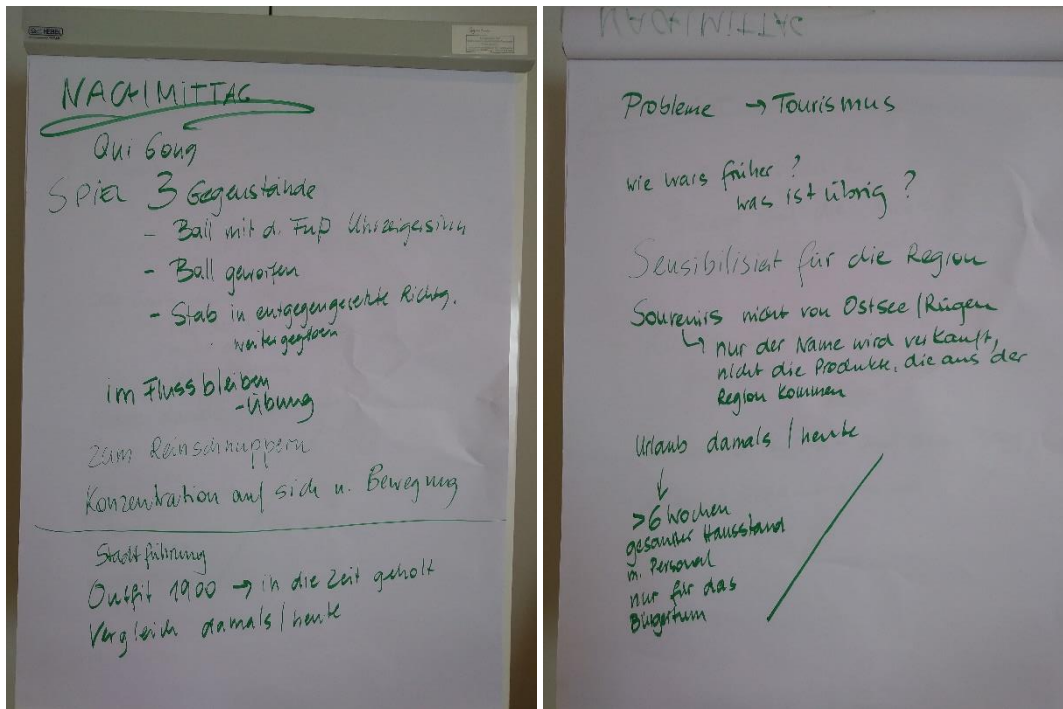 NACHMITTAG
Qui Gong
Spiel 3 Gegenstände
- Ball mit d. Fuß Uhrzeigersinn
- Ball geworfen
- Stab in entgegengesetzte Richtg.
weitergegeben
im Fluss bleiben
-Übung
zum Reinschnuppern
Konzentration auf sich u. Bewegung
Stadtführung
Outfit 1900 → in die Zeit geholt
Vergleich damals / heute
NACHMITTAG
Probleme → Tourismus
wie wars früher?
was ist übrig?
Sensibilisiert für die Region
Souvenirs nicht von Ostsee / Rügen
↳ nur der Name wird verkauft,
nicht die Produkte, die aus der
Region kommen
Urlaub damals / heute
↓
>6 Wochen
gesamter Hausstand
m. Personal
nur für das
Bürgertum